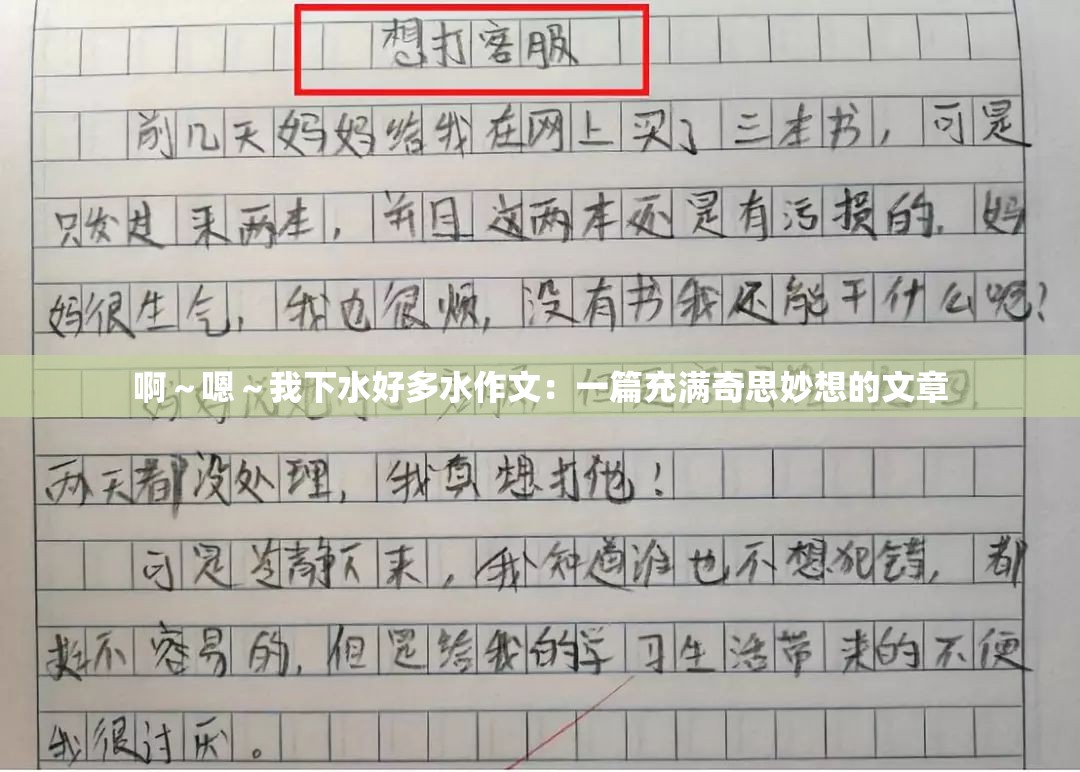 想打客服
前几天妈妈给我在网上买了三本书，可是
只发过来两本，并且这两本还是有污损的。妈
妈很生气，我也很烦，没有书我还能干什么呢？
啊～嗯～我下水好多水作文：一篇充满奇思妙想的文章
两天都没处理，我真想打他！
可是冷静下来，我知道谁也不想犯错，都
挺不容易的，但是给我的学习生活带来的不便
我很讨厌。